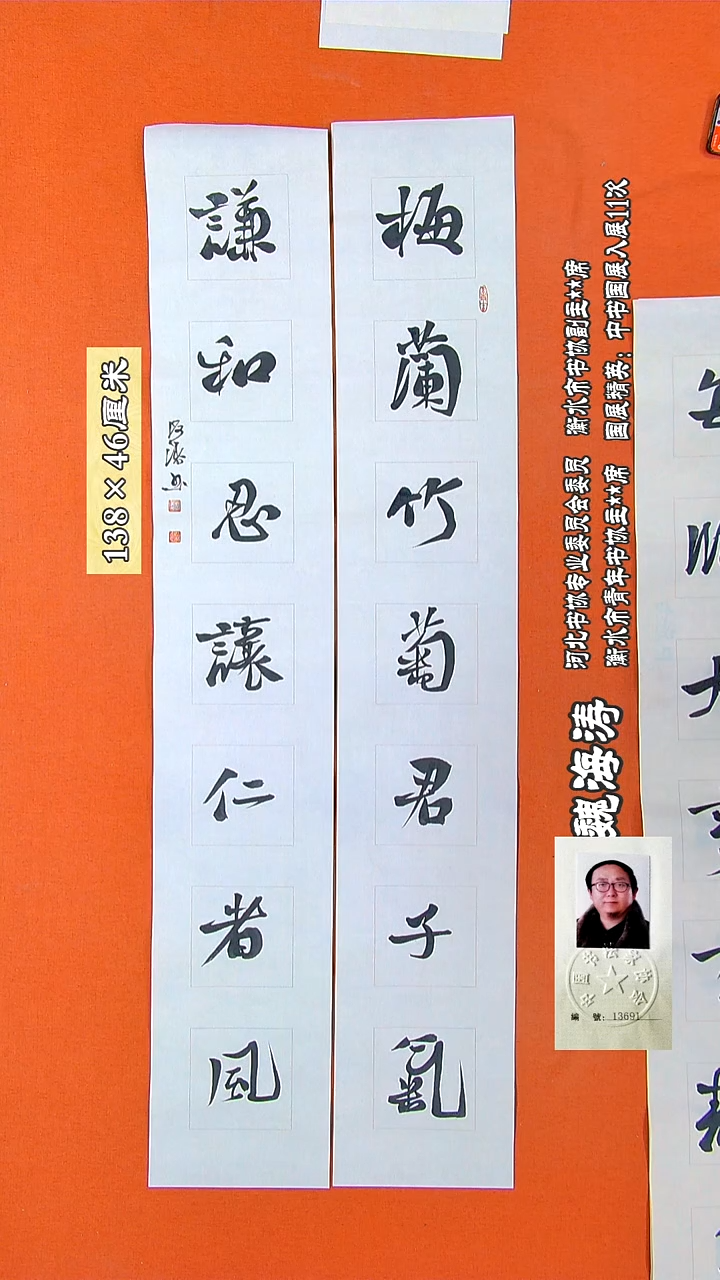 梅蘭竹菊君子氣
謙和忍讓仁者風
海濤書
138×46厘米
魏海涛
河北书协专业委员会委员 衡水市书协副主**席
衡水市青年书协主**席 国展精英：中书国展入展11次
中国书法家协会
編 號：13691